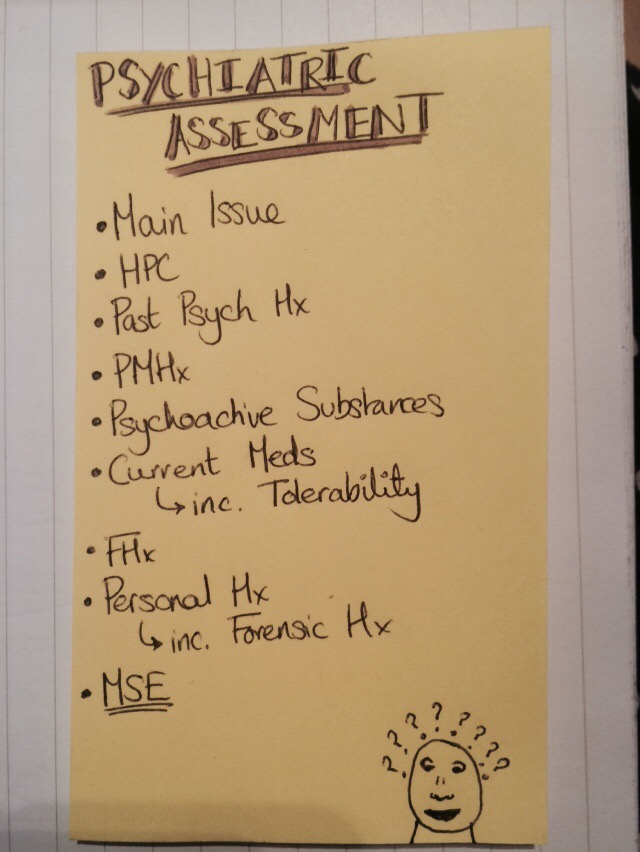 PSYCHIATRIC
ASSESSMENT
• Main Issue
• HPC
• Past Psych Hx
• PMHx
• Psychoactive Substances
• Current Meds
↳ inc. Tolerability
• FHx
• Personal Hx
↳ inc. Forensic Hx
• MSE
? ? ? ? ? ? ? ?